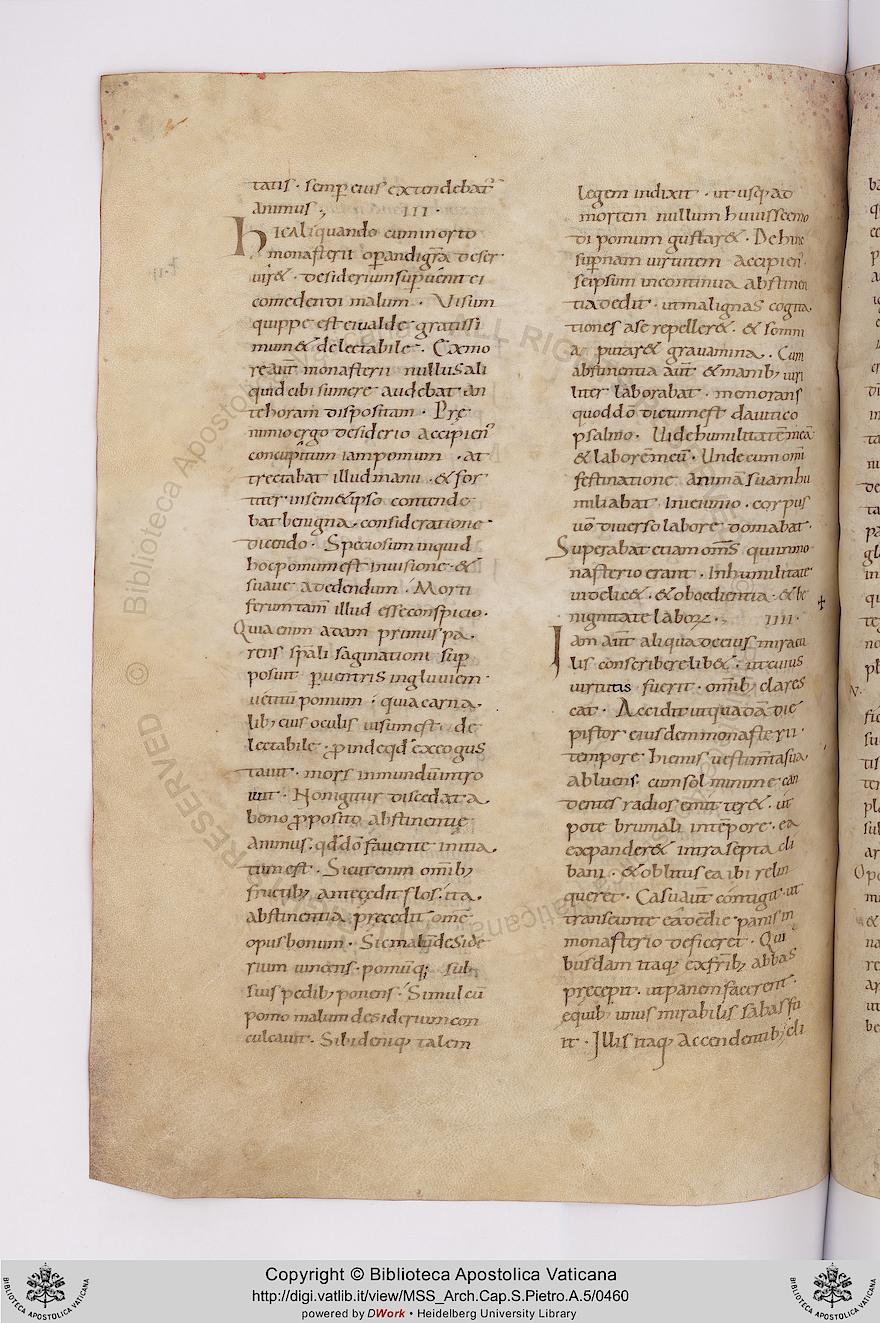 tatis · semp eius extendebat
animus ; III ·
hic aliquando cum in orto
monasterii opandi gr̃a deser
uir& · desiderium supuenit ei
comedendi malum · Uisum
quippe est ei ualde gratissi
mum & delectabile · Ex mo
re aut̃ monasterii nullus ali
quid cibi sumere audebat an
te horam dispositam · Pre
nimio ergo desiderio accipienˢ
concupitum iam pomum · at
trectabat illud manu · & for
titer in sem&ipso contende
bat benigna · consideratione ·
dicendo · Speciosum inquid
hoc pomum est in uisione · &
suaue ad edendum · Morti
ferum tam̃ illud esse conspicio ·
Quia enim adam primus pa
rens sp̃ali saginationi sup
posuit p uentris ingluuiem ·
uetitũ pomum · quia carna
lib; eius oculis uisum est · de
lectabile · pinde qđ excogi
tauit · mors in mundũ intro
iuit · Non igitur discedat a
bono pposito abstinentie
animus · qđ dõ fauente initia
tum est · Sicut enim om̃ib;
fructib; antecedit flos · ita
abstinentia precedit om̃e
opus bonum · Sic malũ deside
rium uincens · pomũq; sub
suis pedib; ponens · Simul cũ
pomo malum desiderium con
culcauit · Sibi deniq; talem
legem indixit · ut usq; ad
mortem nullum huiuscemo
di pomum gustar& · Dehinc
supnam uirtutem accipienˢ
seipsum in continua abstinen
tia dedit · ut malignas cogita
tiones a se repeller& · & somni
a putar& grauamina · Cum
abstinentia aut̃ & manib; uiri
liter laborabat · memorans
quod dõ dictum est dauitico
psalmo · Uide humilitatẽ meã
& laborẽ meũ · Unde cum omĩ
festinatione animã suam hu
miliabat · Ieiunio · corpus
uõ diuerso labore domabat ·
Superabat etiam om̃s qui in mo
nasterio erant · In humilitate
uidelic& · & oboedientia · & be
nignitate labor; · IIII ·
Iam aut̃ aliqua de eius miracu
lis conscribere lib& · ut cuius
uirtutis fuerit · om̃ib; clares
cat · Accidit ut quadã die
pistor eiusdem monasterii ·
tempore hiemis uestim̃ta sua
abluens · cum sol minime can
dentes radios emitter& · ut
pote brumali intẽpore · ea
expander& intra septa cli
bani · & oblitus ea ibi relin
queret · Casu aut̃ contigit · ut
transeunte ea dẽ die · panis in
monasterio deficeret · Qui
busdam itaq; ex fr̃ib; abbas
precepit · ut panem facerent ·
e quib; unus mirabilis sabas fu
it · Illis itaq; accendentib; cli
Copyright © Biblioteca Apostolica Vaticana
http://digi.vatlib.it/view/MSS_Arch.Cap.S.Pietro.A.5/0460
powered by DWork • Heidelberg University Library